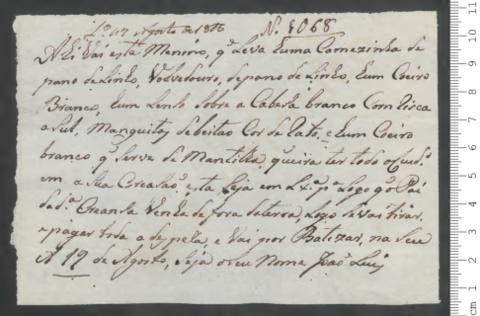 Lº 17 Agosto de 1816 N. 1068
Ahi Vai este Menino, q. Leva huma Camezinha de
pano de Linho, Volvedouro, de pano de Linho, hum Coeiro
Branco, hum Lenso sobre a Cabesa branco Com Risca
aSul, Manguitos de beitao Cor de Rato, e hum Coeiro
branco q. serve de Mantilha, queira ter todo o Cuid.º
em a Sua Creasaõ, esta Seja em Lx.ª p.ª Logo q. o Pai
da d.ª Creansa Venha de fora da terra, Logo se vai tirar,
e pagar toda a despeza, e Vai por Batizar, na Seu
A 19 de Agosto, Seja o seu Nome Joaõ Luis
cm 1 2 3 4 5 6 7 8 9 10 11